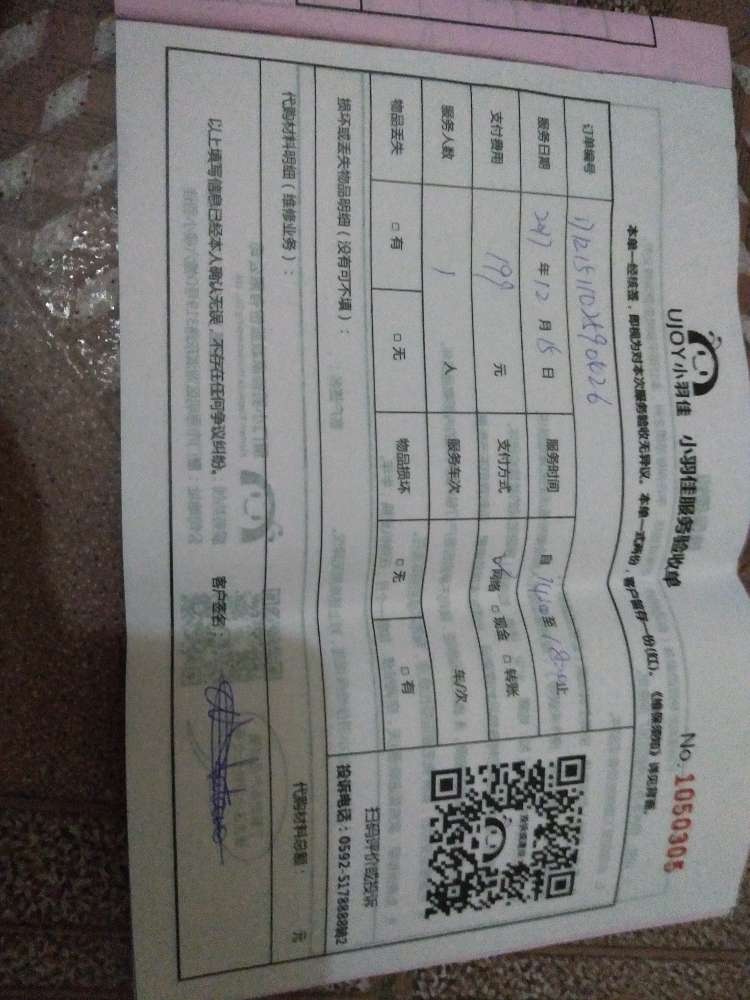 UJOY小羽佳 小羽佳服务验收单 No. 1050305
本单一经核签，即视为对本次服务验收无异议。本单一式两份，客户留存一份(红)。《维保须知》详见背面。
订单编号
服务日期 2017 年 12 月 15 日 服务时间 自 14:00 至 18:00 止
支付费用 199 元 支付方式 ☑网络 □现金 □转账
服务人数 1 人 服务车次 车/次
物品丢失 □有 □无 物品损坏 □无 □有
扫码评价或投诉
投诉电话：0592-5178888转2
损坏或丢失物品明细（没有可不填）：
代购材料明细（维修业务）： 代购材料总额： 元
以上填写信息已经本人确认无误，不存在任何争议纠纷。 客户签名：